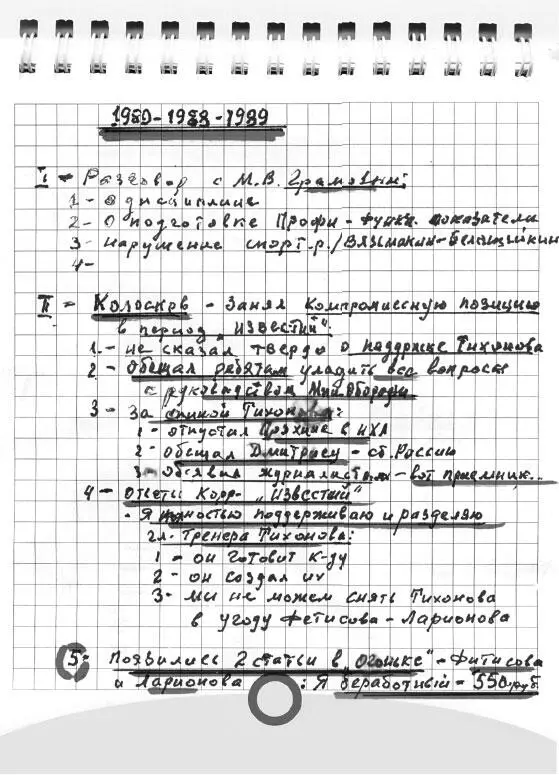 1980-1988-1989
I - Разговор с М.В. Грамовым:
1 - о дисциплине
2 - О подготовке Профи - функц. показатели
3 - нарушение спорт.р./Вязьмикин-Белошейкин
4 -
II - Колосков - занял компромиссную позицию
в период "Известий":
1. - не сказал твердо о поддержке Тихонова
2 - обещал ребятам уладить все вопросы
с руководством Мин Обороны
3 - За спиной Тихонова:
1 - отпустал Пряхина в НХЛ
2 - обещал Дмитриеву - сб. России
3 - объявил журналистам - вот приемник...
4 - ответы Корр- "Известий"
- Я полностью поддерживаю и разделяю
гл. тренера Тихонова:
1 - он готовит к-ду
2 - он создал их
3 - мы не можем снять Тихонова
в угоду Фетисова - Ларионова
5 - Появились 2 статьи в "Огоньке" - Фитисова
и Ларионова : Я безработный - 550 руб.